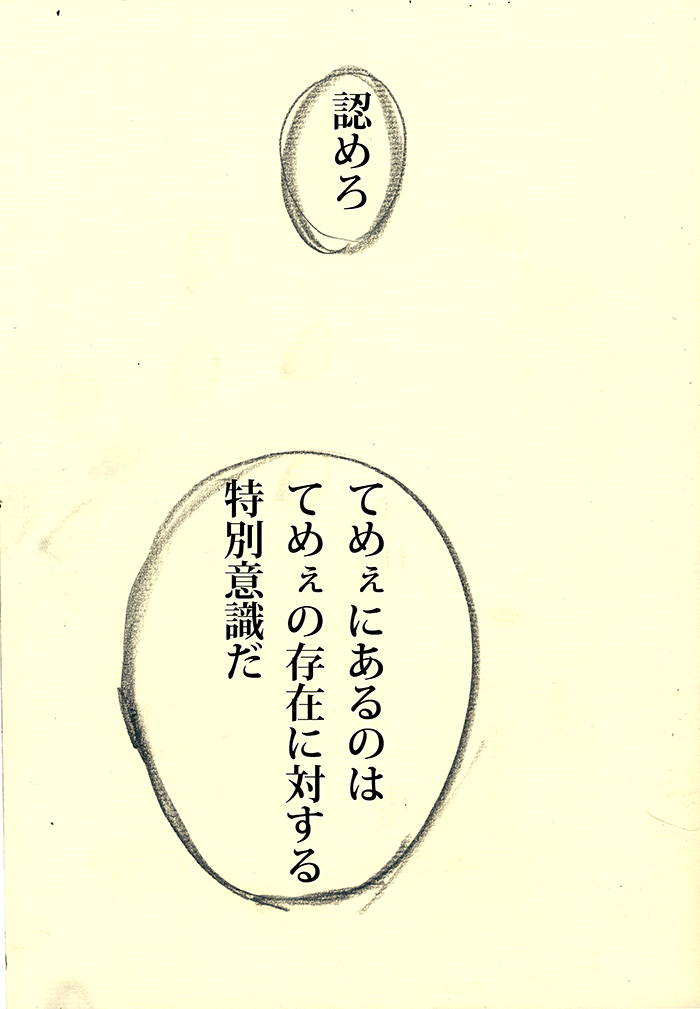 認めろ
てめぇにあるのは
てめぇの存在に対する
特別意識だ